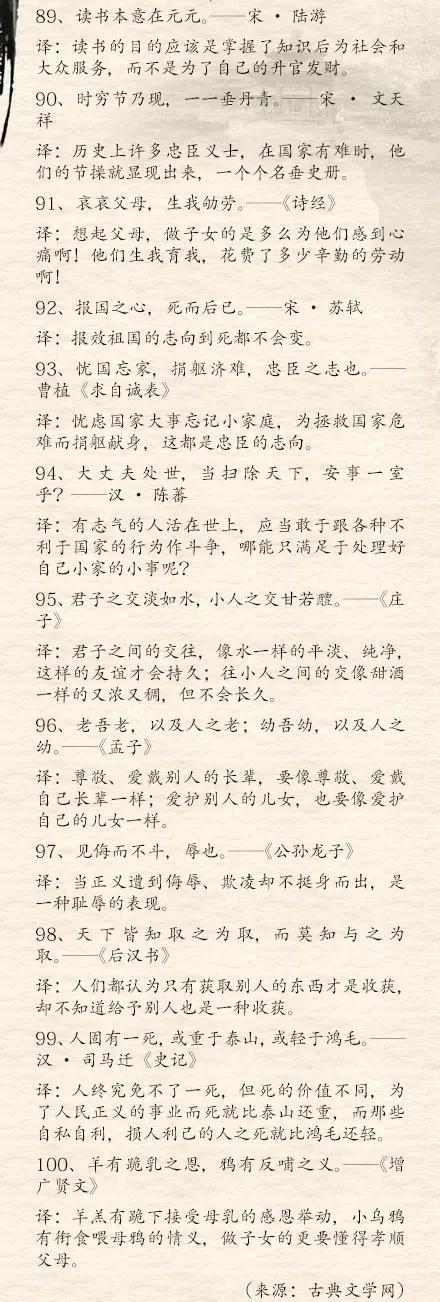 89、读书本意在元元。——宋 · 陆游
译：读书的目的应该是掌握了知识后为社会和
大众服务，而不是为了自己的升官发财。
90、时穷节乃现，一一垂丹青。——宋 · 文天
祥
译：历史上许多忠臣义士，在国家有难时，他
们的节操就显现出来，一个个名垂史册。
91、哀哀父母，生我劬劳。——《诗经》
译：想起父母，做子女的是多么为他们感到心
痛啊！他们生我育我，花费了多少辛勤的劳动
啊！
92、报国之心，死而后已。——宋 · 苏轼
译：报效祖国的志向到死都不会变。
93、忧国忘家，捐躯济难，忠臣之志也。——
曹植《求自诚表》
译：忧虑国家大事忘记小家庭，为拯救国家危
难而捐躯献身，这都是忠臣的志向。
94、大丈夫处世，当扫除天下，安事一室
乎？——汉 · 陈蕃
译：有志气的人活在世上，应当敢于跟各种不
利于国家的行为作斗争，哪能只满足于处理好
自己小家的小事呢？
95、君子之交淡如水，小人之交甘若醴。——《庄
子》
译：君子之间的交往，像水一样的平淡、纯净，
这样的友谊才会持久；往小人之间的交像甜酒
一样的又浓又稠，但不会长久。
96、老吾老，以及人之老；幼吾幼，以及人之
幼。——《孟子》
译：尊敬、爱戴别人的长辈，要像尊敬、爱戴
自己长辈一样；爱护别人的儿女，也要像爱护
自己的儿女一样。
97、见侮而不斗，辱也。——《公孙龙子》
译：当正义遭到侮辱、欺凌却不挺身而出，是
一种耻辱的表现。
98、天下皆知取之为取，而莫知与之为
取。——《后汉书》
译：人们都认为只有获取别人的东西才是收获，
却不知道给予别人也是一种收获。
99、人固有一死，或重于泰山，或轻于鸿毛。——
汉 · 司马迁《史记》
译：人终究免不了一死，但死的价值不同，为
了人民正义的事业而死就比泰山还重，而那些
自私自利，损人利己的人之死就比鸿毛还轻。
100、羊有跪乳之恩，鸦有反哺之义。——《增
广贤文》
译：羊羔有跪下接受母乳的感恩举动，小乌鸦
有衔食喂母鸦的情义，做子女的更要懂得孝顺
父母。
（来源：古典文学网）